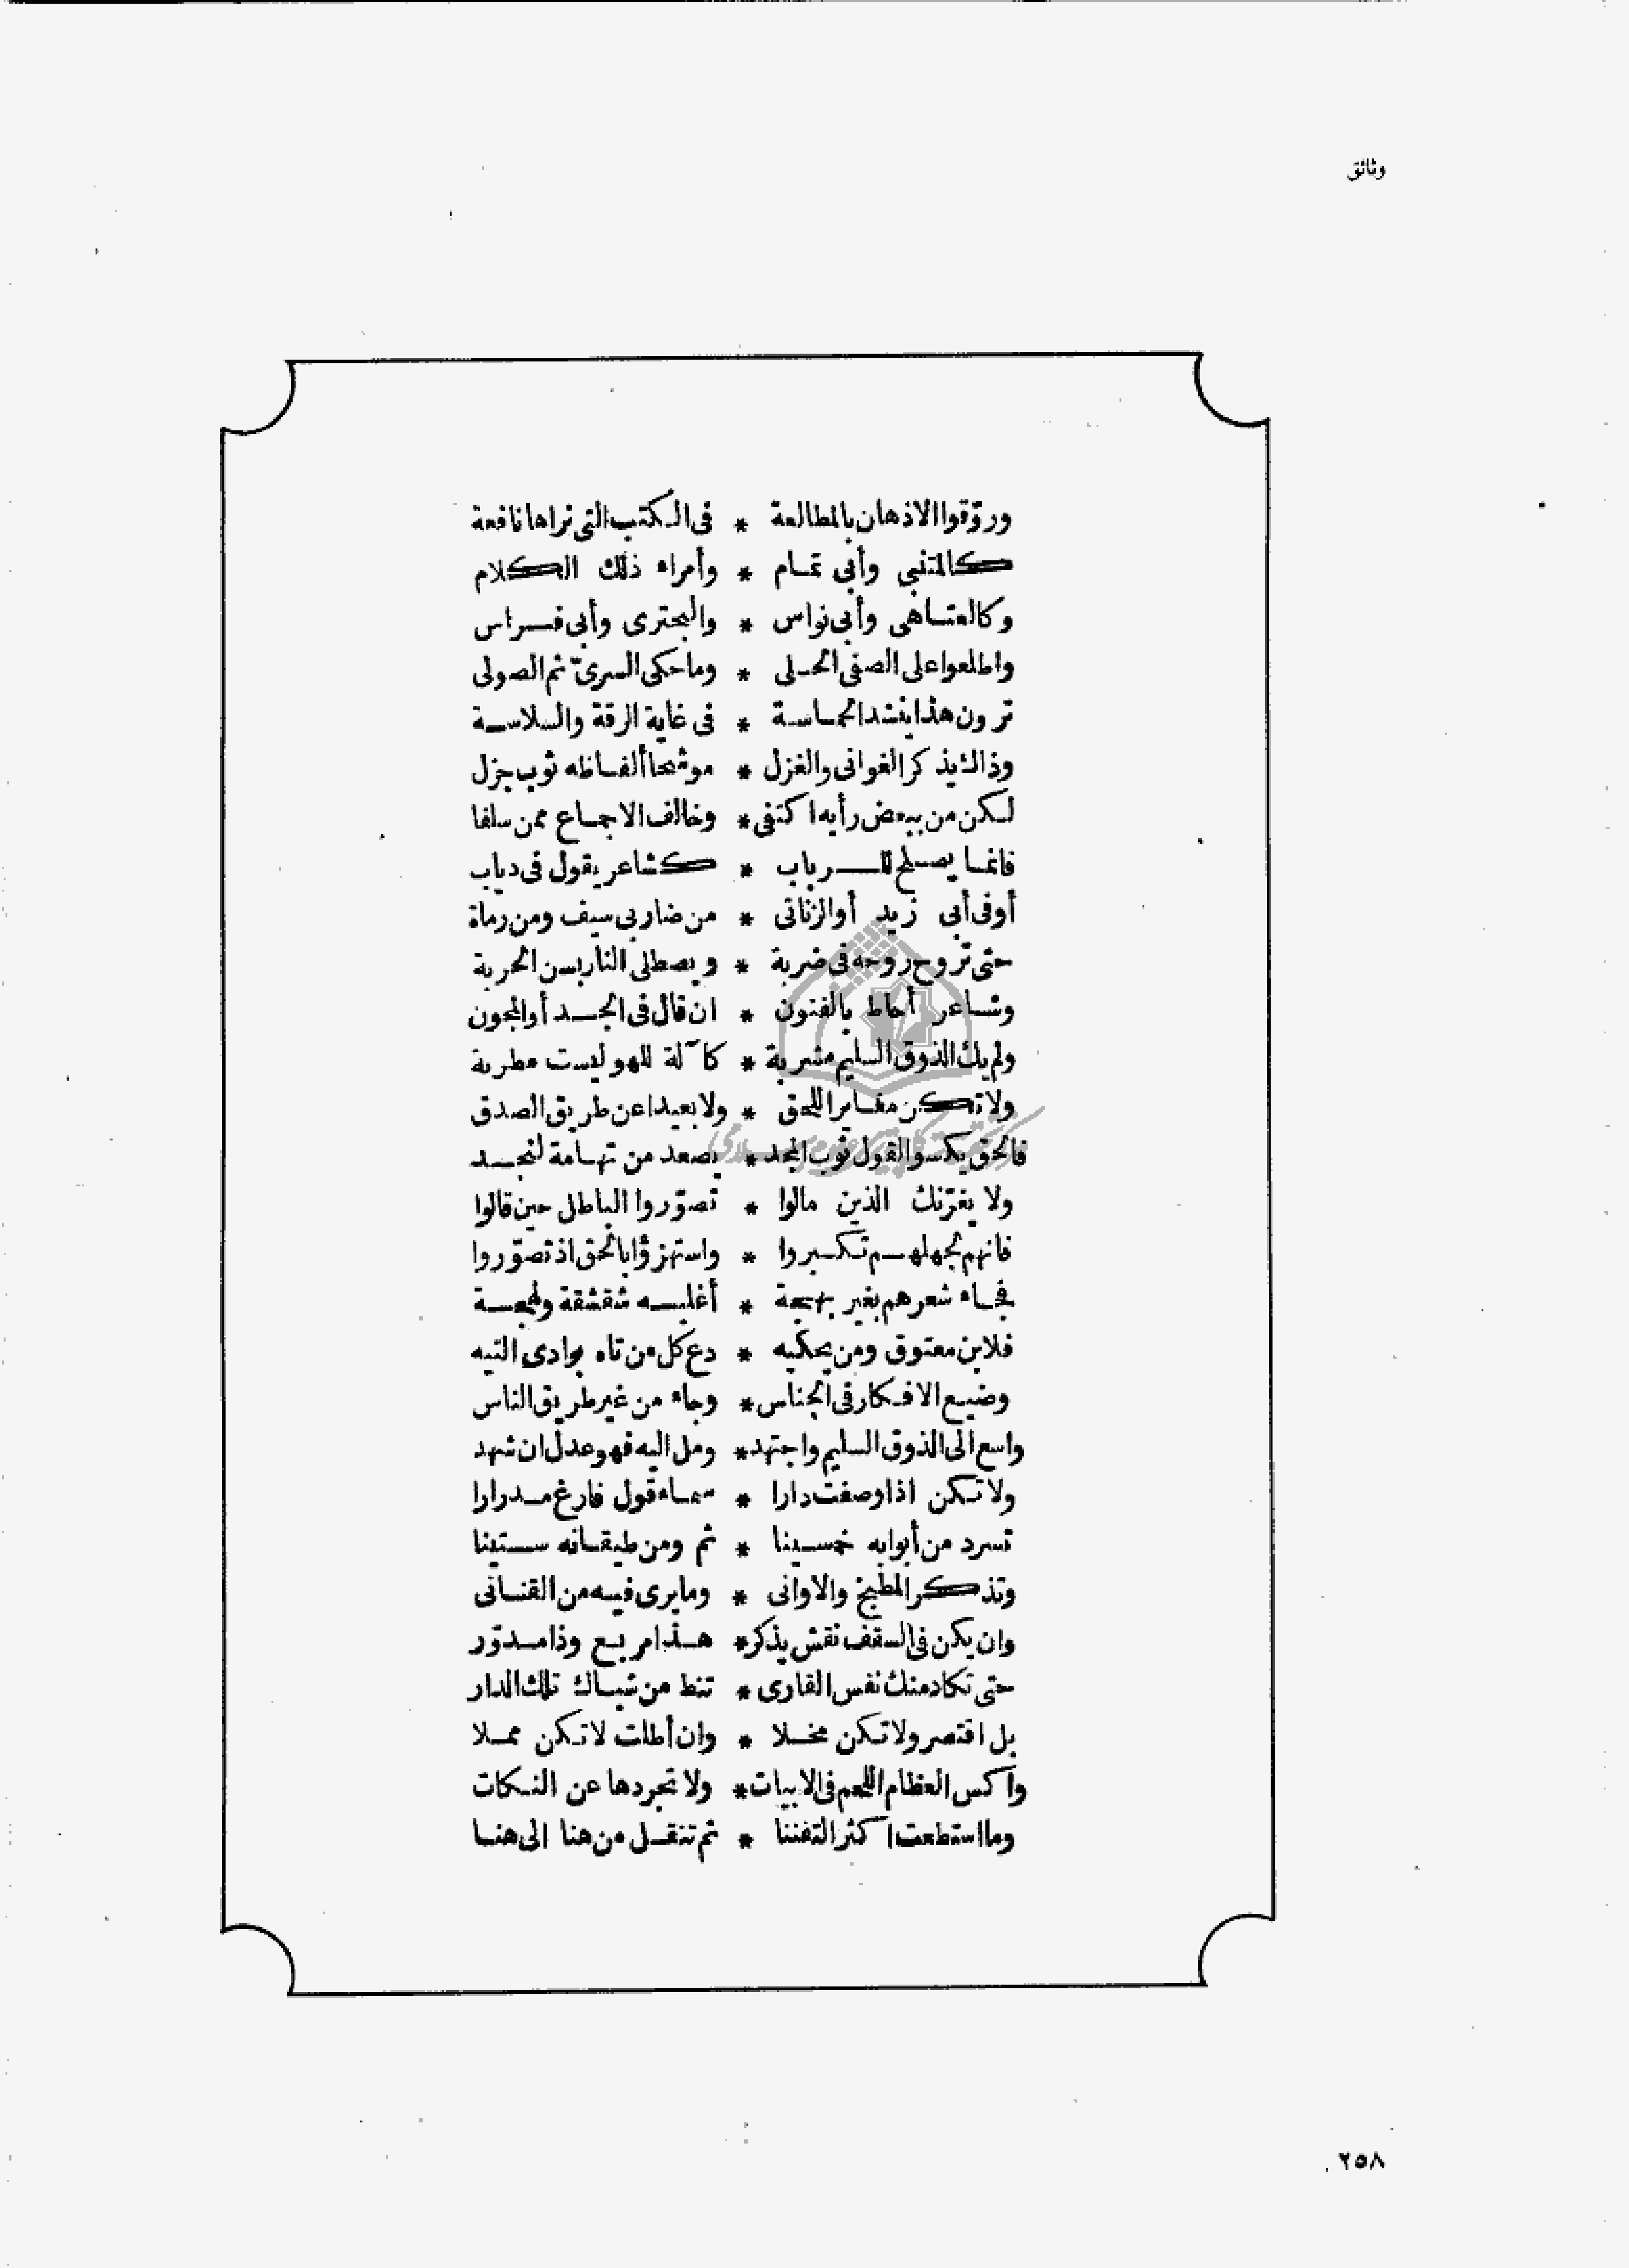 وثائق
وروّقوا الاذهان بالمطالعة * فى الكتب التى نراها نافعة
كالمتنبى وأبى تمام * وأمراء ذلك الكلام
وكالعتاهى وأبى نواس * والبحترى وأبى فراس
واطلعوا على الصفى الحلى * وما حكى السرىّ ثم الصولى
ترون هذا ينشد الحماسة * فى غاية الرقة والسلاسة
وذاك يذكر الغوانى والغزل * موشحا ألفاظه ثوب جزل
لكن من ببعض رأيه اكتفى * وخالف الاجماع ممن سلفا
فانما يصلح للرباب * كشاعر يقول فى دياب
أو فى أبى زيد أو الزناتى * من ضاربى سيف ومن رماة
حتى تروح روحه فى ضربة * ويصطلى النار بسن الحربة
وشاعر أحاط بالفنون * ان قال فى الجد أو المجون
ولم يك الذوق السليم مشربة * كآلة للهو ليست مطربة
ولا تكن مغايرا للحق * ولا بعيدا عن طريق الصدق
فالحق يكسو القول ثوب المجد * يصعد من تهامة لنجد
ولا يغرّنك الذين مالوا * تصوّروا الباطل حين قالوا
فانهم لجهلهم تكبروا * واستهزؤا بالحق اذ تصوّروا
فجاء شعرهم بغير بهجة * أغلبه شقشقة ولهجة
فلابن معتوق ومن يحكيه * دع كل من تاه بوادى التيه
وضيع الافكار فى الجناس * وجاء من غير طريق الناس
واسع الى الذوق السليم واجتهد * ومل اليه فهو عدل ان شهد
ولا تكن اذا وصفت دارا * سماء قول فارغ مدرارا
تسرد من أبوابه خمسينا * ثم ومن طيقانه ستينا
وتذكر المطبخ والاوانى * وما يرى فيه من القنانى
وان يكن فى السقف نقش يذكر * هذا مربع وذا مدوّر
حتى تكاد منك نفس القارى * تنط من شباك تلك الدار
بل اقتصر ولا تكن مخلا * وان أطلت لا تكن مملا
واكس العظام اللحم فى الابيات * ولا تجردها عن النكات
وما استطعت اكثر التفننا * ثم تنقل من هنا الى هنا
٢٥٨